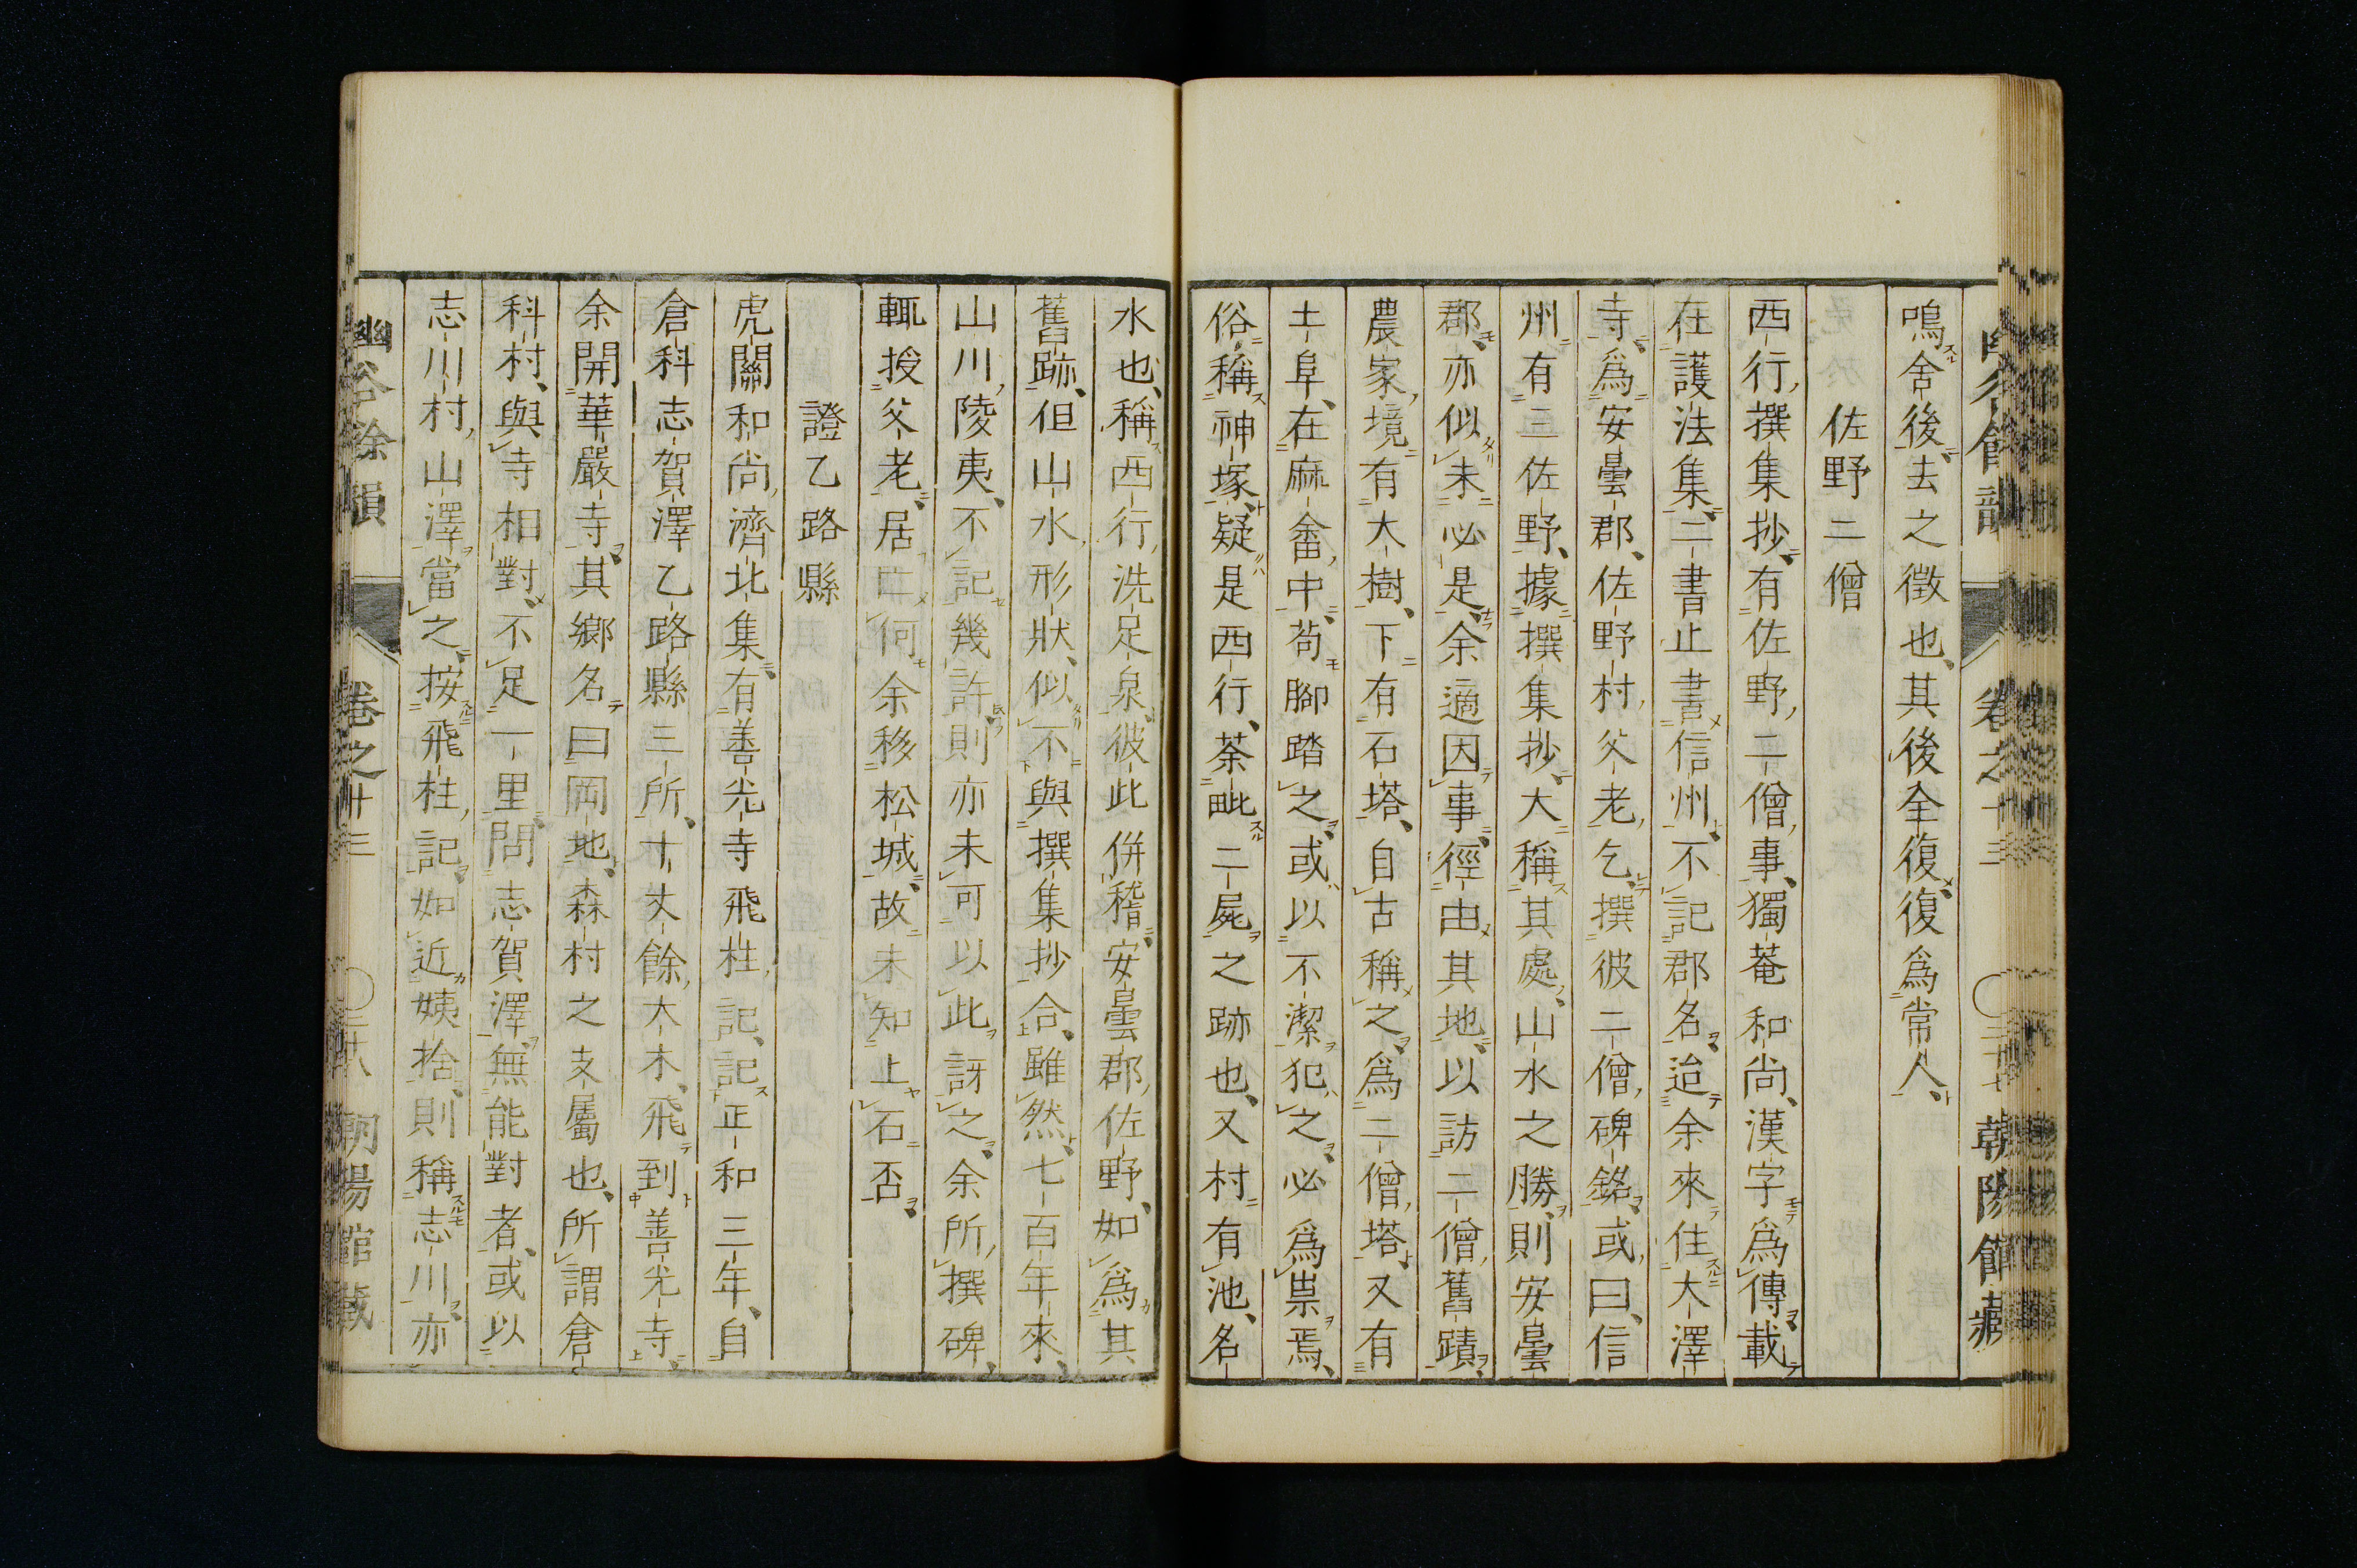 鳴舍後去之徵也其後全復復爲常人
佐野二僧
西行撰集抄有佐野二僧事獨菴和尚漢字爲傳載
在護法集二書止書信州不記郡名迨余來住大澤
寺爲安曇郡佐野村父老乞撰彼二僧碑銘或曰信
州有三佐野據撰集抄大稱其處山水之勝則安曇
郡亦似未必是余適因事徑由其地以訪二僧舊蹟
農家境有大樹下有石塔自古稱之爲二僧塔又有
土阜在麻畬中苟腳踏之或以不潔犯之必爲祟焉
俗稱神塚疑是西行荼毗二屍之跡也又村有池名
水也稱西行洗足泉彼此併稽安曇郡佐野如爲其
舊跡但山水形狀似不與撰集抄合雖然七百年來
山川陵夷不記幾許則亦未可以此訝之余所撰碑
輒授父老居亡何余移松城故未知上石否
證乙路縣
虎關和尚濟北集有善光寺飛柱記記正和三年自
倉科志賀澤乙路縣三所十丈餘大木飛到善光寺
余開華嚴寺其鄉名曰岡地森村之支屬也所謂倉
科村與寺相對不足一里問志賀澤無能對者或以
志川村山澤當之按飛柱記如近姨捨則稱志川亦
幽谷餘韻 卷之十三 三十八 朝陽館藏